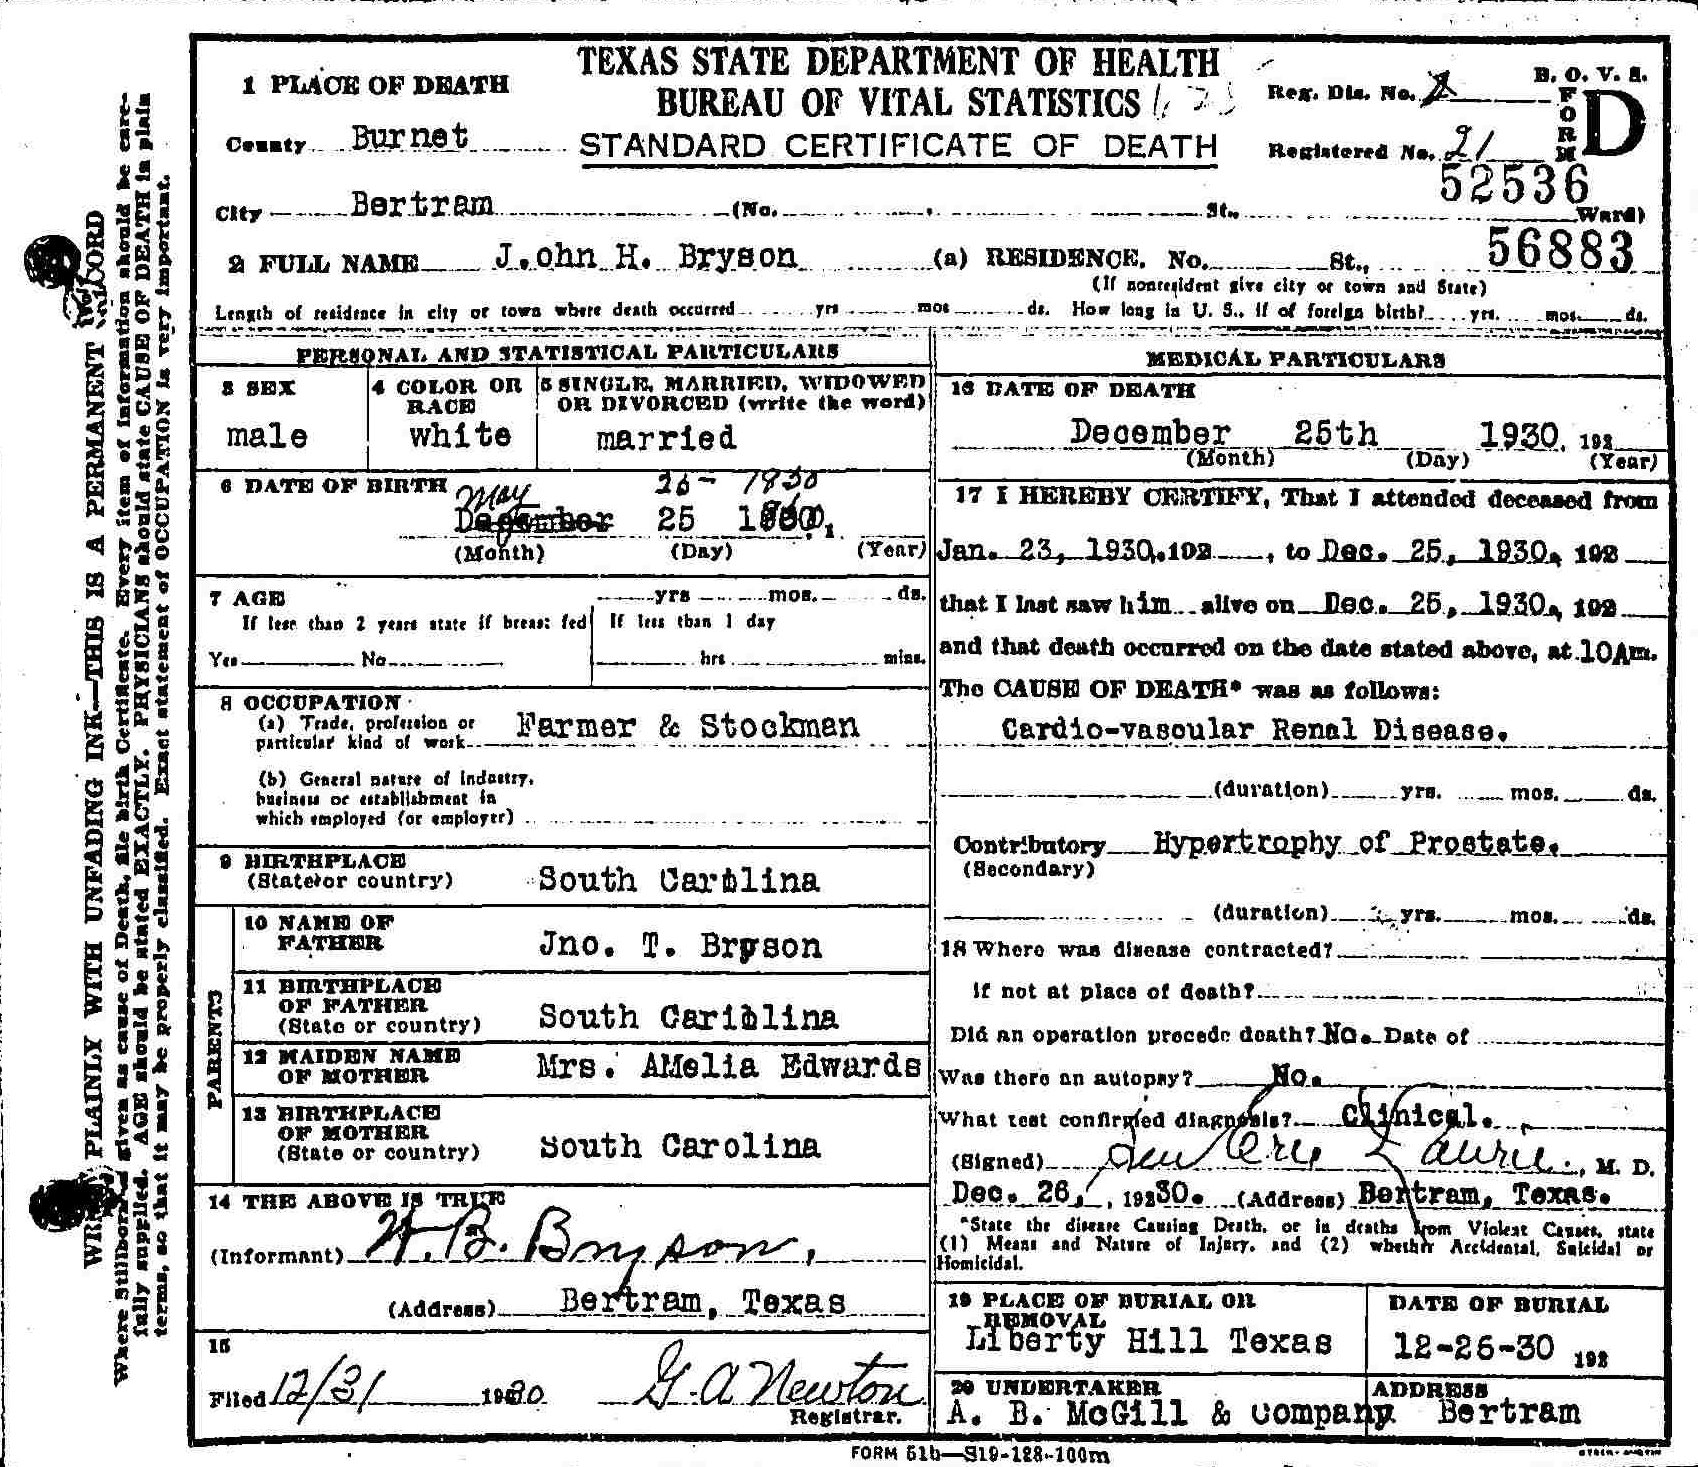 TEXAS STATE DEPARTMENT OF HEALTH
BUREAU OF VITAL STATISTICS
STANDARD CERTIFICATE OF DEATH
Reg. Dis. No.
B. O. V. S.
FORM D
Registered No. 21
52536
56883
1 PLACE OF DEATH
County Burnet
City Bertram (No. St., Ward)
2 FULL NAME J.ohn H. Bryson (a) RESIDENCE. No. St.,
(If nonresident give city or town and State)
Length of residence in city or town where death occurred yrs mos ds. How long in U. S., if of foreign birth? yrs. mos. ds.
PERSONAL AND STATISTICAL PARTICULARS
3 SEX
male
4 COLOR OR RACE
white
5 SINGLE, MARRIED, WIDOWED
OR DIVORCED (write the word)
married
6 DATE OF BIRTH
May 1830
December 25
(Month) (Day) (Year)
7 AGE yrs mos. ds.
If less than 2 years state if breast fed
Yes No
If less than 1 day
hrs mins.
8 OCCUPATION
(a) Trade, profession or
particular kind of work Farmer & Stockman
(b) General nature of industry,
business or establishment in
which employed (or employer)
9 BIRTHPLACE
(State or country) South Carolina
PARENTS
10 NAME OF
FATHER Jno. T. Bryson
11 BIRTHPLACE
OF FATHER
(State or country) South Cariblina
12 MAIDEN NAME
OF MOTHER Mrs. AMelia Edwards
13 BIRTHPLACE
OF MOTHER
(State or country) South Carolina
14 THE ABOVE IS TRUE
(Informant) W. B. Bryson,
(Address) Bertram, Texas
15
Filed 12/31 1930 G. A Newton
Registrar.
MEDICAL PARTICULARS
16 DATE OF DEATH
December 25th 1930. 192
(Month) (Day) (Year)
17 I HEREBY CERTIFY, That I attended deceased from
Jan. 23, 1930, 192 , to Dec. 25, 1930, 192
that I last saw him alive on Dec. 25, 1930, 192
and that death occurred on the date stated above, at 10Am.
The CAUSE OF DEATH* was as follows:
Cardio-vascular Renal Disease.
(duration) yrs. mos. ds.
Contributory Hypertrophy of Prostate.
(Secondary)
(duration) yrs. mos. ds.
18 Where was disease contracted?
if not at place of death?
Did an operation precede death? No. Date of
Was there an autopsy? No.
What test confirmed diagnosis? Clinical.
(Signed) , M. D.
Dec. 26, , 19230. (Address) Bertram, Texas.
*State the disease Causing Death, or in deaths from Violent Causes, state
(1) Means and Nature of Injury, and (2) whether Accidental, Suicidal or
Homicidal.
19 PLACE OF BURIAL OR
REMOVAL
Liberty Hill Texas
DATE OF BURIAL
12-26-30 192
20 UNDERTAKER
A. B. McGill & Company
ADDRESS
Bertram
FORM 51b—S19-128-100m
WRITE PLAINLY WITH UNFADING INK—THIS IS A PERMANENT RECORD
Where Stillborn is given as cause of Death, file birth Certificate. Every item of information should be care-
fully supplied. AGE should be stated EXACTLY. PHYSICIANS should state CAUSE OF DEATH in plain
terms, so that it may be properly classified. Exact statement of OCCUPATION is very important.